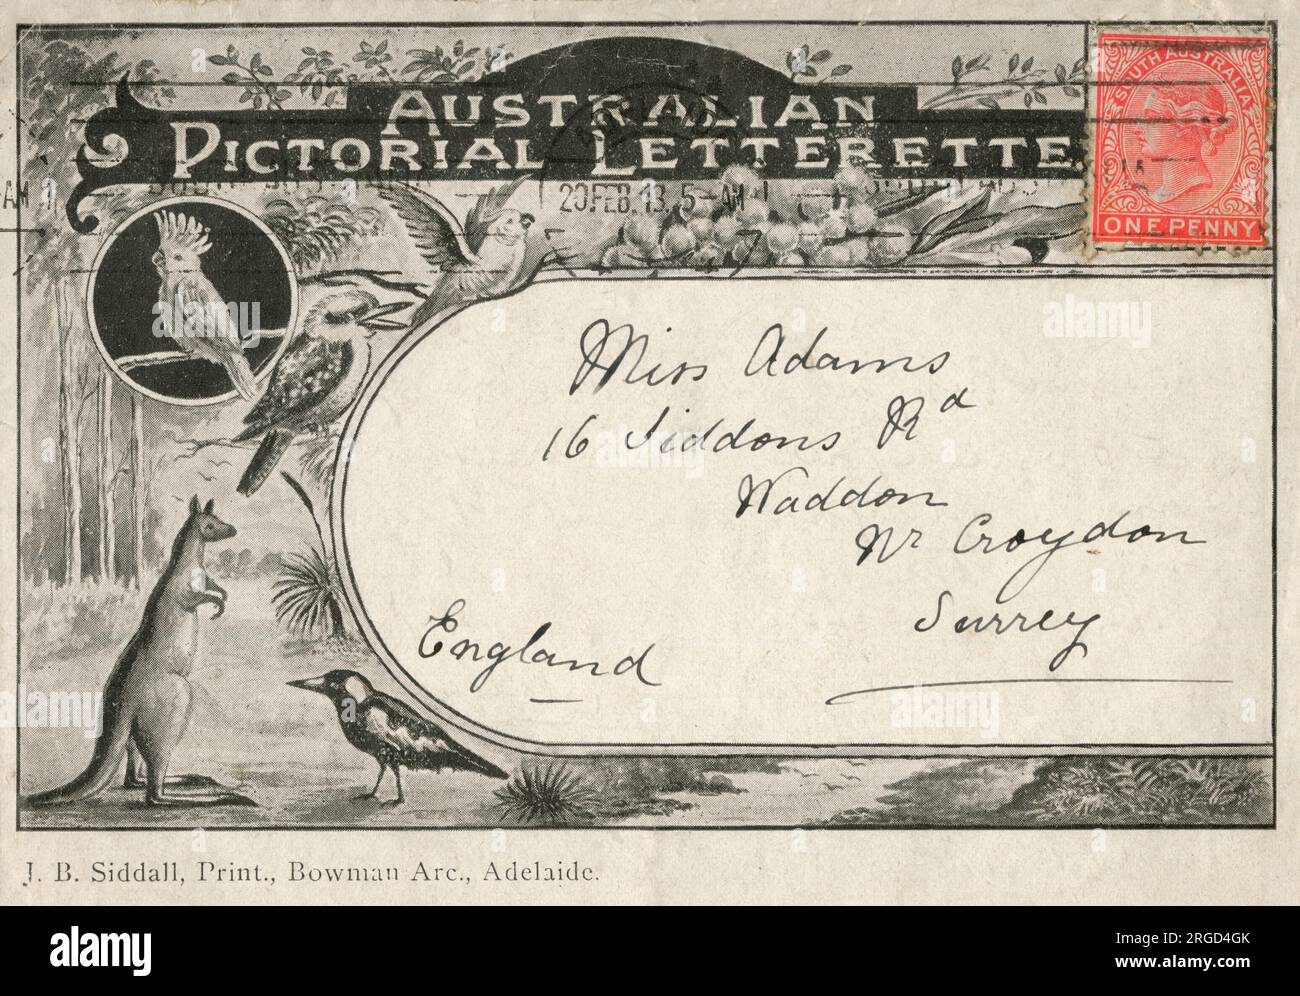 AUSTRALIAN
PICTORIAL LETTERETTE
SOUTH AUSTRALIA
ONE PENNY
20 FEB. 13. 5-AM
AM
Miss Adams
16 Siddons Rd
Waddon
Nr Croydon
Surrey
England
J. B. Siddall, Print., Bowman Arc., Adelaide.
alamy
alamy
Image ID: 2RGD4GK
www.alamy.com